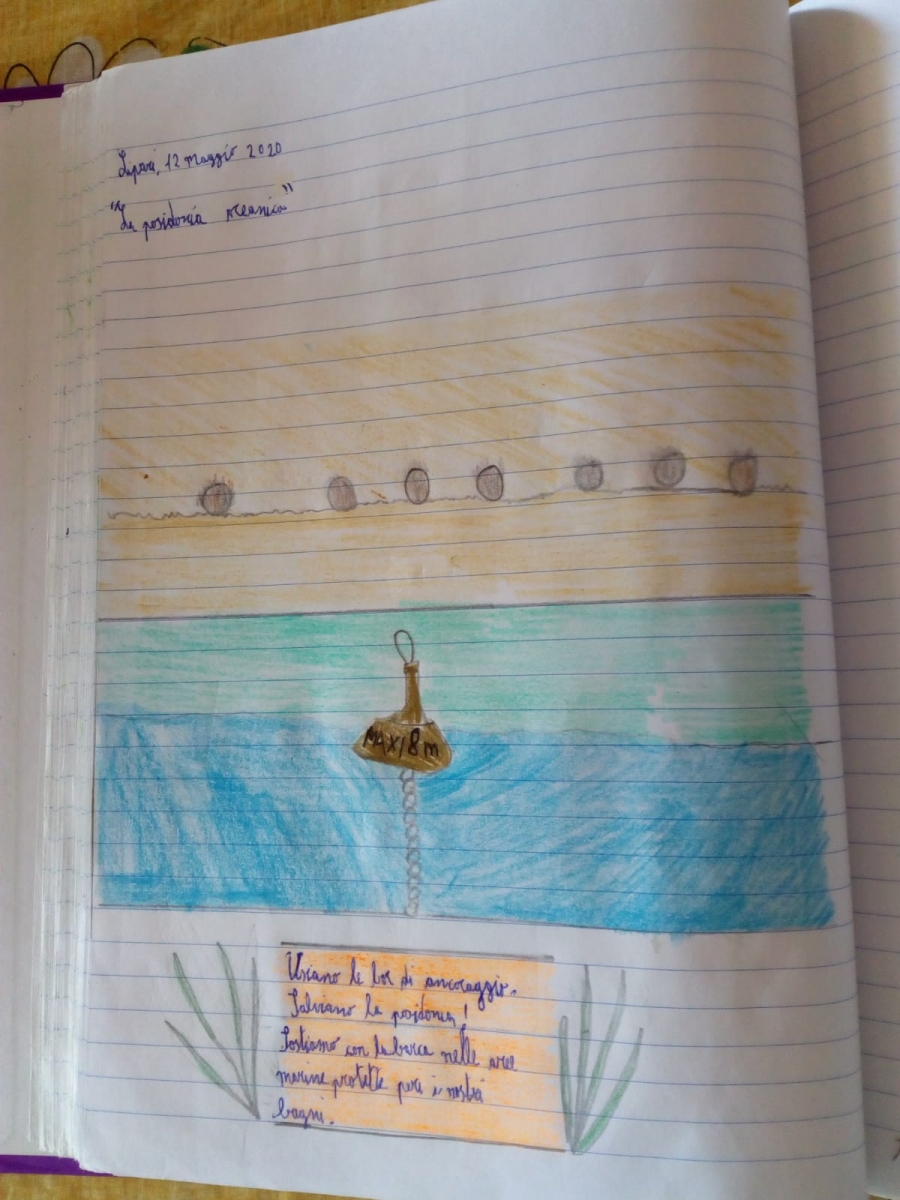 Lipari, 12 maggio 2020
"La posidonia oceanica"
MAX 18 m
Usiamo le boe di ancoraggio.
Salviamo la posidonia!
Sostiamo con la barca nelle aree
marine protette per i nostri
bagni.